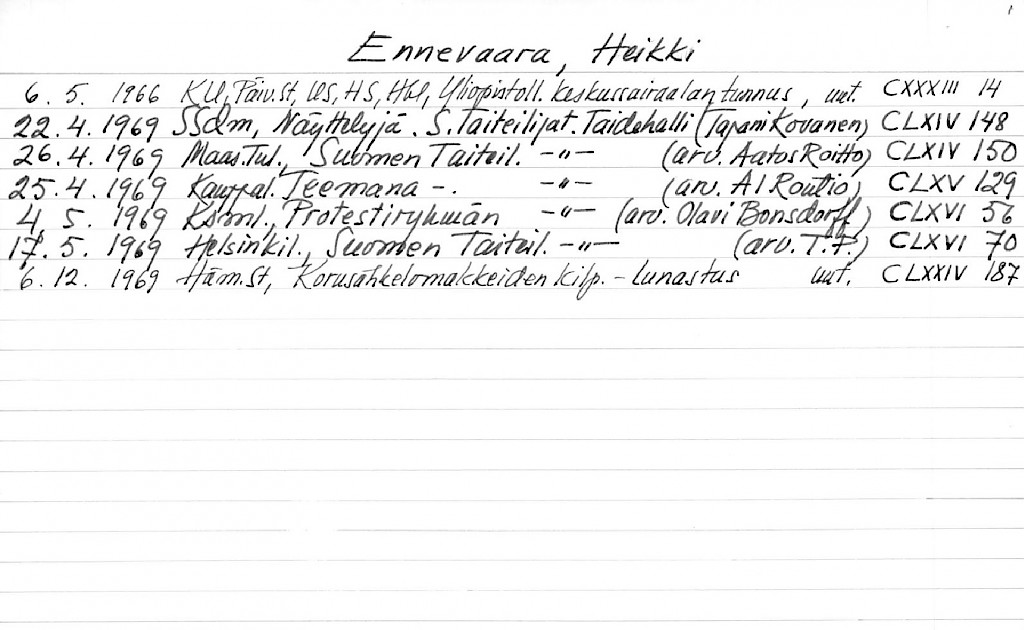 Ennevaara, Heikki
6. 5. 1966 KU, Päiv.St, US, HS, HU, Yliopistoll. keskussairaalan tunnus, uut. CXXXIII 14
22.4.1969 SSdm, Näyttelyjä. S.Taiteilijat. Taidehalli (Tapani Kovanen) CLXIV 148
26.4.1969 Maas.Tul., Suomen Taiteil. -"- (arv. Aatos Roitto) CLXIV 150
25.4.1969 Kauppal. Teemana -. -"- (arv. A I Routio) CLXV 129
4. 5. 1969 Ksml., Protestiryhmän -"- (arv. Olavi Bonsdorff) CLXVI 56
17. 5. 1969 Helsinkil., Suomen Taiteil. -"- (arv. T.P.) CLXVI 70
6. 12. 1969 Häm.St, Korusähkelomakkeiden kilp. - Lunastus uut. CLXXIV 187